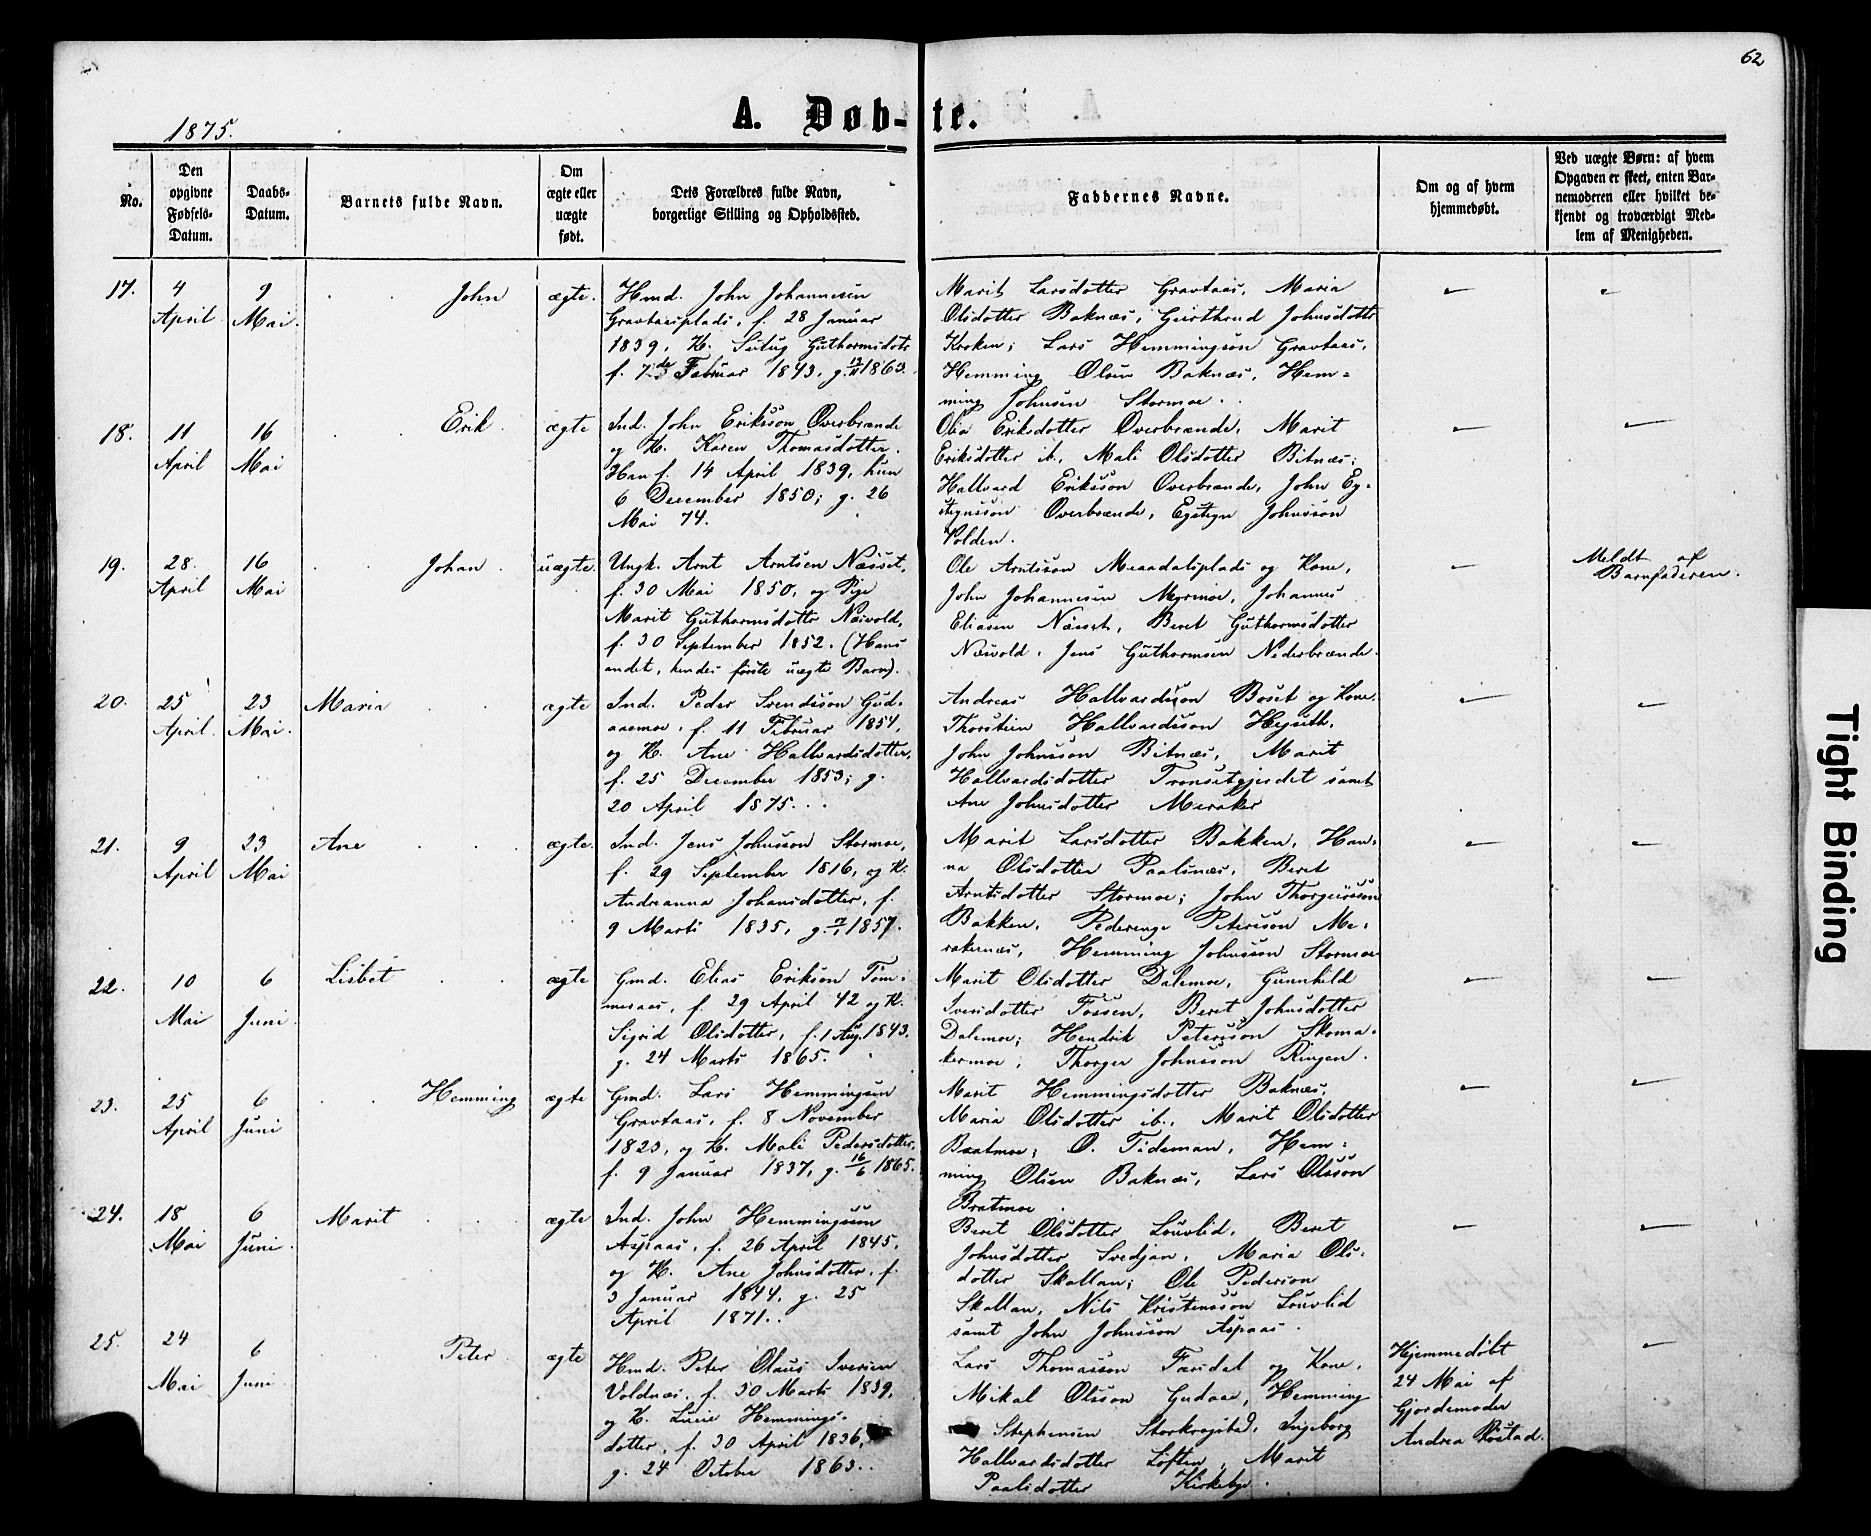 62
1875.
A. Døb-te.
No.
Den
opgivne
Fødsels-
Datum.
Daabs-
Datum.
Barnets fulde Navn.
Om
ægte eller
uægte
født.
Dets Forældres fulde Navn,
borgerlige Stilling og Opholdssted.
Faddernes Navne.
Om og af hvem
hjemmedøbt.
Ved uægte Børn: af hvem
Opgaven er skeet, enten Bar-
nemoderen eller hvilket be-
kjendt og troværdigt Med-
lem af Menigheden.
17.
4
April
9
Mai.
John
ægte.
Hmd. John Johannesen
Gravtaasplads, f. 28 Januar
1839, K. Guthormsdotr
f. 7de Februar 1843, g. 1863.
Marit Larsdotter Gravtaas, Maria
Olsdotter Baknæs, Johnsdottr
Kroken; Lars Hemmingson Gravtaas,
Hemming Olsen Baknæs, Hem=
ming Johnsen Stormoe.
18.
11
April
16
Mai
Erik
ægte
Ind. John Eriksson Overbrænde
og K. Karen Thomasdotter.
Han f. 14 April 1839, hun
6 December 1850; g. 26
Mai 74.
Olia Eriksdotter Overbrænde, Marit
Eriksdotter ib., Mali Olsdotter Bitnæs;
Hallvard Eriksson Overbrænde, John Eg=
steynsson Overbrænde, Egsteyn Johnsson
Volden.
19.
28.
April
16
Mai
Johan
uægte.
Ungk. Arnt Arntsen Næsset,
f. 30 Mai 1850, og Pige
Marit Guthormsdottr Næsvold,
f. 30 September 1852. (Hans
andet, hendes første uægte Barn).
Ole Arntsson Meaadalsplads og Kone,
John Johannesen Myrmoe, Johannes
Eliasen Næsset, Beret Guthormsdotter
Næsvold, Jens Guthormsen Nederbrænde.
Meldt af
Barnfaderen.
20.
25
April.
23
Mai.
Maria
ægte
Ind. Peder Svendsson Gud=
aaemoe, f. 11 Februar 1854,
og K. Ane Hallvardsdotter,
f. 25 December 1853; g.
20 April 1875.
Andreas Hallvardsson Boset og Kone.
Thorstein Hallvardsson
John Johnsson Bitnæs, Marit
Hallvardsdotter Tronsetgjerdet samt
Ane Johnsdotter Meraker
21.
9
April
23
Mai
Ane
ægte.
Ind. Jens Johnsson Stormoe,
f. 29 September 1816, og K.
Andreanna Johansdotter, f.
9 Marts 1835, g. 1857.
Marit Larsdotter Bakken, Han=
na Olsdotter Paalsnæs, Beret
Arntsdotter Stormoe; John Thorgersson
Bakken, Pedersenge Petersson Me=
rakernæs, Hemming Johnsson Stormoe
22.
10
Mai
6
Juni.
Lisbet
ægte
Gmd. Elias Erikson Tøm=
meraas, f. 29 April 42 og K.
Sigrid Olsdotter, f. 1 Aug. 1843.
g. 24 Marts 1865.
Marit Olsdotter Dalemoe, Gunnhild
Iversdotter Fossen, Beret Johnsdotter
Dalemoe; Hendrik Petersson Skoma=
kermoe, Thorger Johnsson Ringen.
23.
25
April
6
Juni
Hemming
ægte
Gmd. Lars Hemmingsen
Gravtaas, f. 8 November
1823, og K. Mali Pedersdotter,
f. 9 Januar 1837, g. 16/6 1865.
Marit Hemmingsdotter Baknæs,
Maria Olsdotter ib., Marit Olsdotter
Bratmoe; O. Tideman, Hem=
ming Olsen Baknæs, Lars Olsson
Bratmoe.
24.
18
Mai
6
Juni.
Marit
ægte
Ind. John Hemmingsen
Aspaas, f. 26 April 1845,
og K. Ane Johnsdotter, f.
3 Januar 1844, g. 25
April 1871.
Beret Olsdotter Louvlid, Beret
Johnsdotter Svedjan, Maria Ols=
dotter Skallan; Ole Pederson
Skallan, Nils Kristensson Louvlid
samt John Johnsson Aspaas.
25.
24
Mai
6
Juni
Peter
ægte
Hmd. Peter Olaus Iversen
Voldnæs, f. 30 Marts 1839,
og K. Lucie Hemmings=
dotter, f. 30 April 1836,
g. 24 October 1863.
Lars Thomasson Færdal og Kone,
Mikal Olsson Gudaa, Hemming
Stephensen Storkrogstad, Ingeborg
Hallvardsdotter Løften, Marit
Paalsdotter Kirkeby.
Hjemmedøbt
24 Mai af
Gjordemoder
Andrea Røstad.
Tight Binding